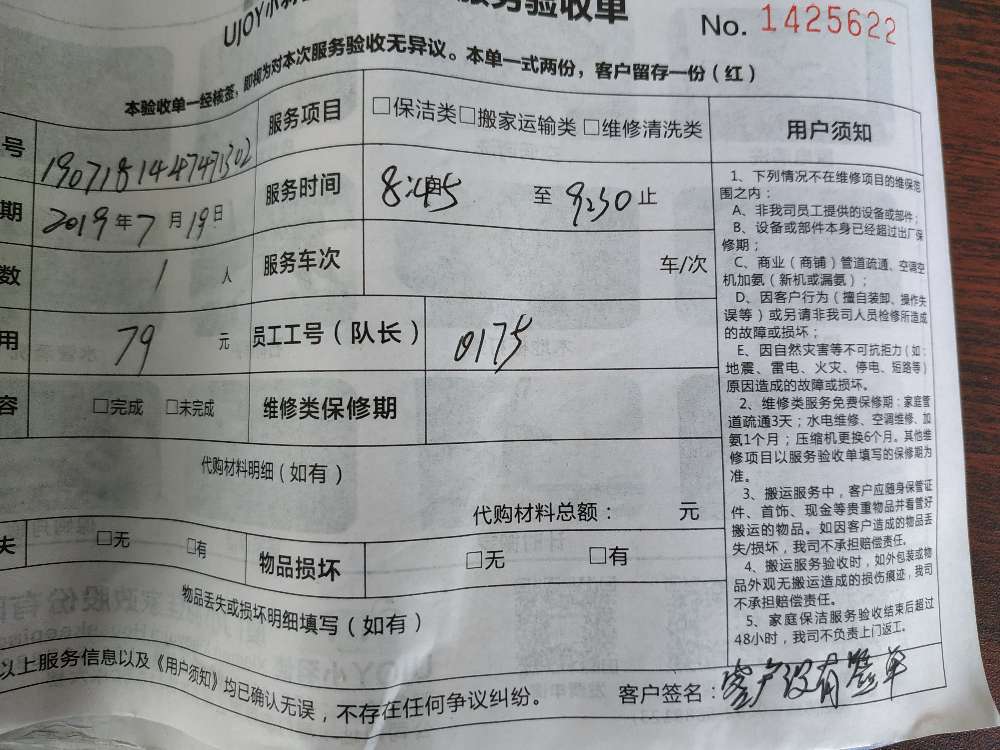 UJOY小羽 服务验收单
No. 1425622
本验收单一经核签，即视为对本次服务验收无异议。本单一式两份，客户留存一份（红）
号 1907181447471302 服务项目 □保洁类□搬家运输类 □维修清洗类
期 2019年7月19日 服务时间 至 9:30 止
数 1 人 服务车次 车/次
用 79 元 员工工号（队长） 0175
容 □完成 □未完成 维修类保修期
代购材料明细（如有）
代购材料总额： 元
失 □无 □有 物品损坏 □无 □有
物品丢失或损坏明细填写（如有）
以上服务信息以及《用户须知》均已确认无误，不存在任何争议纠纷。 客户签名：客户没有签单
用户须知
1、下列情况不在维修项目的维保范
围之内：
A、非我司员工提供的设备或部件；
B、设备或部件本身已经超过出厂保
修期；
C、商业（商铺）管道疏通、空调空
机加氨（新机或漏氨）；
D、因客户行为（擅自装卸、操作失
误等）或另请非我司人员检修所造成
的故障或损坏；
E、因自然灾害等不可抗拒力（如：
地震、雷电、火灾、停电、短路等）
原因造成的故障或损坏。
2、维修类服务免费保修期：家庭管
道疏通3天；水电维修、空调维修、加
氨1个月；压缩机更换6个月。其他维
修项目以服务验收单填写的保修期为
准。
3、搬运服务中，客户应随身保管证
件、首饰、现金等贵重物品并看管好
搬运的物品。如因客户造成的物品丢
失/损坏，我司不承担赔偿责任。
4、搬运服务验收时，如外包装或物
品外观无搬运造成的损伤痕迹，我司
不承担赔偿责任。
5、家庭保洁服务验收结束后超过
48小时，我司不负责上门返工。